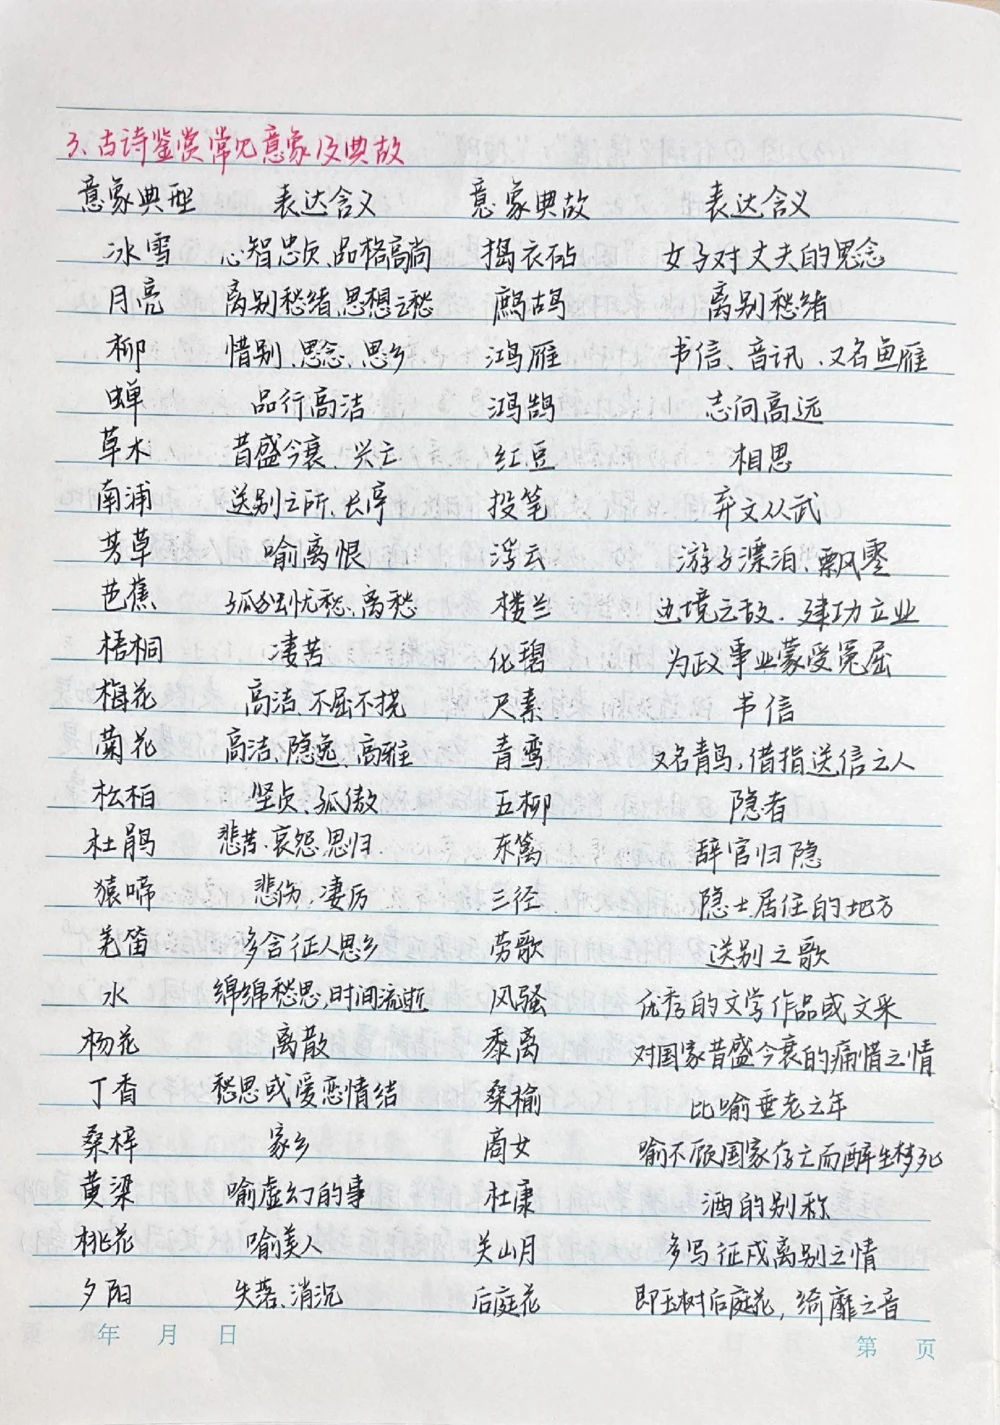 3、古诗鉴赏常见意象及典故
意象典型 表达含义 意象典故 表达含义
冰雪 心智忠贞、品格高尚 捣衣砧 女子对丈夫的思念
月亮 离别愁绪、思想之愁 鹧鸪 离别愁绪
柳 惜别、思念、思乡 鸿雁 书信、音讯、又名鱼雁
蝉 品行高洁 鸿鹄 志向高远
草木 昔盛今衰、兴亡 红豆 相思
南浦 送别之所、长亭 投笔 弃文从武
芳草 喻离恨 浮云 游子漂泊、飘零
芭蕉 孤独忧愁、离愁 楼兰 边境之敌、建功立业
梧桐 凄苦 化碧 为政事业蒙受冤屈
梅花 高洁、不屈不挠 尺素 书信
菊花 高洁、隐逸、高雅 青鸾 又名青鸟，借指送信之人
松柏 坚贞、孤傲 五柳 隐者
杜鹃 悲苦、哀怨、思归 东篱 辞官归隐
猿啼 悲伤、凄厉 三径 隐士居住的地方
羌笛 多含征人思乡 劳歌 送别之歌
水 绵绵愁思，时间流逝 风骚 优秀的文学作品或文采
杨花 离散 黍离 对国家昔盛今衰的痛惜之情
丁香 愁思或爱恋情结 桑榆 比喻垂老之年
桑梓 家乡 商女 喻不顾国家存亡而醉生梦死
黄粱 喻虚幻的事 杜康 酒的别称
桃花 喻美人 关山月 多写征戍离别之情
夕阳 失落、消沉 后庭花 即玉树后庭花，绮靡之音
年 月 日 第 页